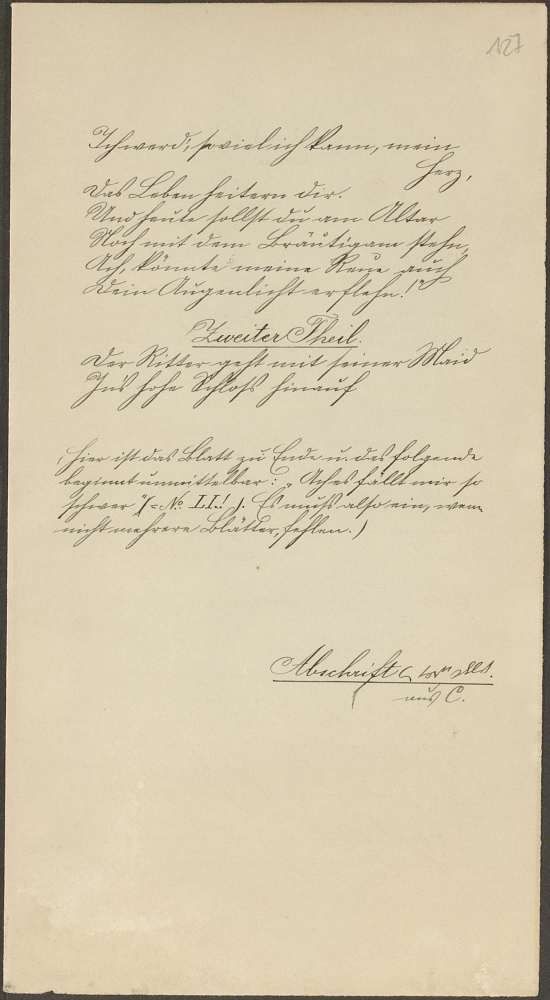 127
Ich werd', so viel ich kann, mein
Herz,
Das Leben heitern dir.
Und heute sollst du am Altar
Noch mit dem Bräutigam stehn,
Ach, könnte meine Reue auch
Dein Augenlicht erflehn!"
Zweiter Theil.
Der Ritter geht mit seiner Maid
In's hohe Schloß hinauf
(Hier ist das Blatt zu Ende u. das folgende
beginnt unmittelbar: „Ach es fällt mir so
schwer" (= No II!). Es muß also ein, wenn
nicht mehrere Blätter, fehlen.)
Abschrift
aus C.